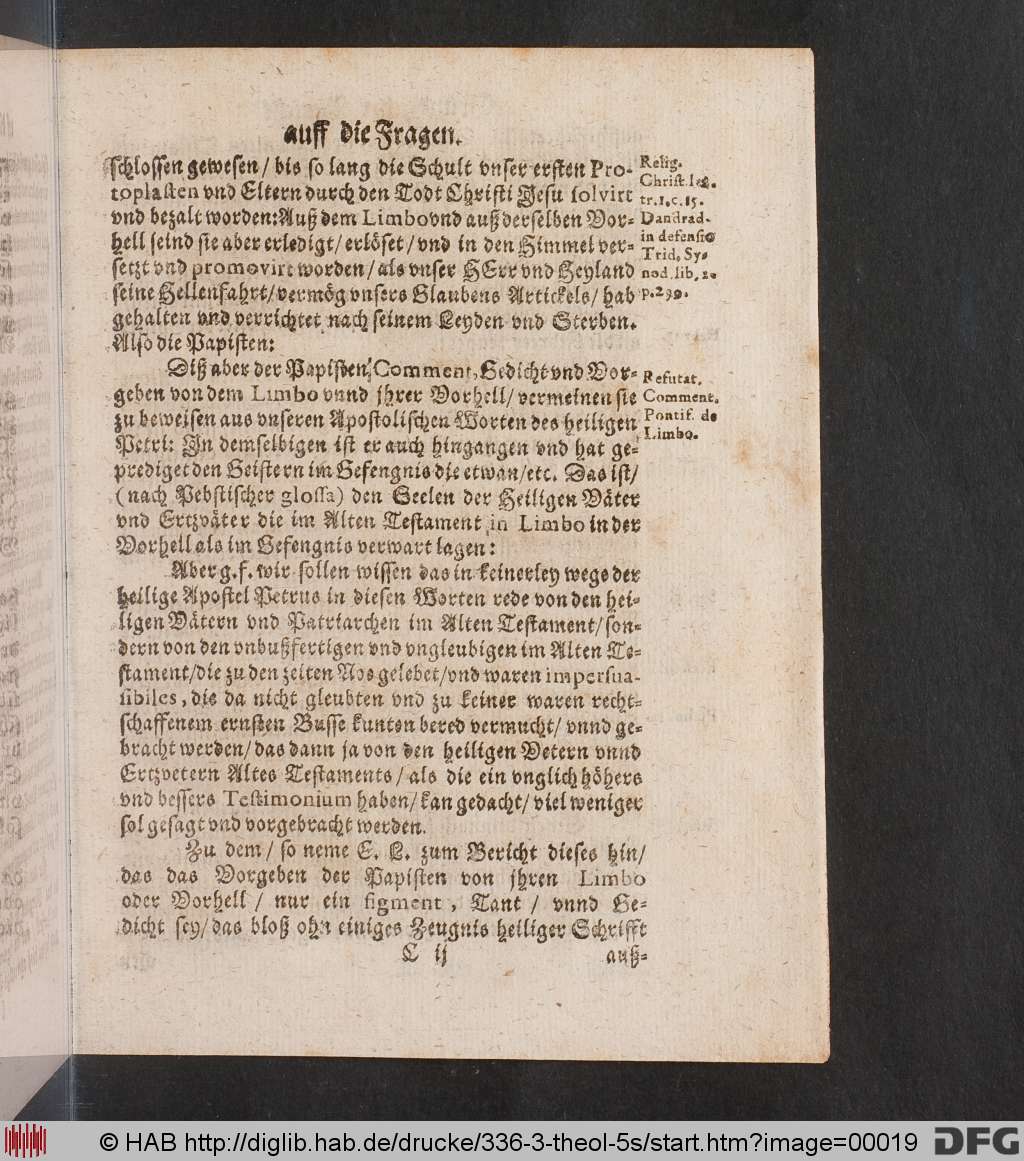 auff die Fragen.
schlossen gewesen / bis so lang die Schult vnser ersten Pro-
toplasten vnd Eltern durch den Todt Christi Jesu solvirt
vnd bezalt worden: Auß dem Limbo vnd auß derselben Vor-
hell seind sie aber erledigt / erlöset / vnd in den Himmel ver-
setzt vnd promovirt worden / als vnser HErr vnd Heyland
seine Hellenfahrt / vermög vnsers Glaubens Artickels / hab
gehalten vnd verrichtet nach seinem Leyden vnd Sterben.
Also die Papisten:
Relig.
Christ. leg.
tr. 1. c. 15.
Dandrad.
in defensio
Trid. Sy-
nod. lib. 2.
p. 290.
Diß aber der Papisten Comment, Gedicht vnd Vor-
geben von dem Limbo vnnd jhrer Vorhell / vermeinen sie
zu beweisen aus vnseren Apostolischen Worten des heiligen
Petri: In demselbigen ist er auch hingangen vnd hat ge-
prediget den Geistern im Gefengnis die etwan / etc. Das ist /
(nach Pebstischer glossa) den Seelen der Heiligen Väter
vnd Ertzväter die im Alten Testament in Limbo in der
Vorhell als im Gefengnis verwart lagen:
Refutat.
Comment.
Pontif. de
Limbo.
Aber g. f. wir sollen wissen das in keinerley wege der
heilige Apostel Petrus in diesen Worten rede von den hei-
ligen Vätern vnd Patriarchen im Alten Testament / son-
dern von den vnbußfertigen vnd vngleubigen im Alten Te-
stament / die zu den zeiten Noe gelebet / vnd waren impersua-
sibiles, die da nicht gleubten vnd zu keiner waren recht-
schaffenem ernsten Busse kunten bered vermucht / vnnd ge-
bracht werden / das dann ja von den heiligen Vetern vnnd
Ertzvetern Altes Testaments / als die ein vnglich höhers
vnd bessers Testimonium haben / kan gedacht / viel weniger
sol gesagt vnd vorgebracht werden.
Zu dem / so neme E. L. zum Bericht dieses hin /
das das Vorgeben der Papisten von jhren Limbo
oder Vorhell / nur ein figment, Tant / vnnd Ge-
dicht sey / das bloß ohn einiges Zeugnis heiliger Schrifft
C ij
auß-
© HAB http://diglib.hab.de/drucke/336-3-theol-5s/start.htm?image=00019
DFG